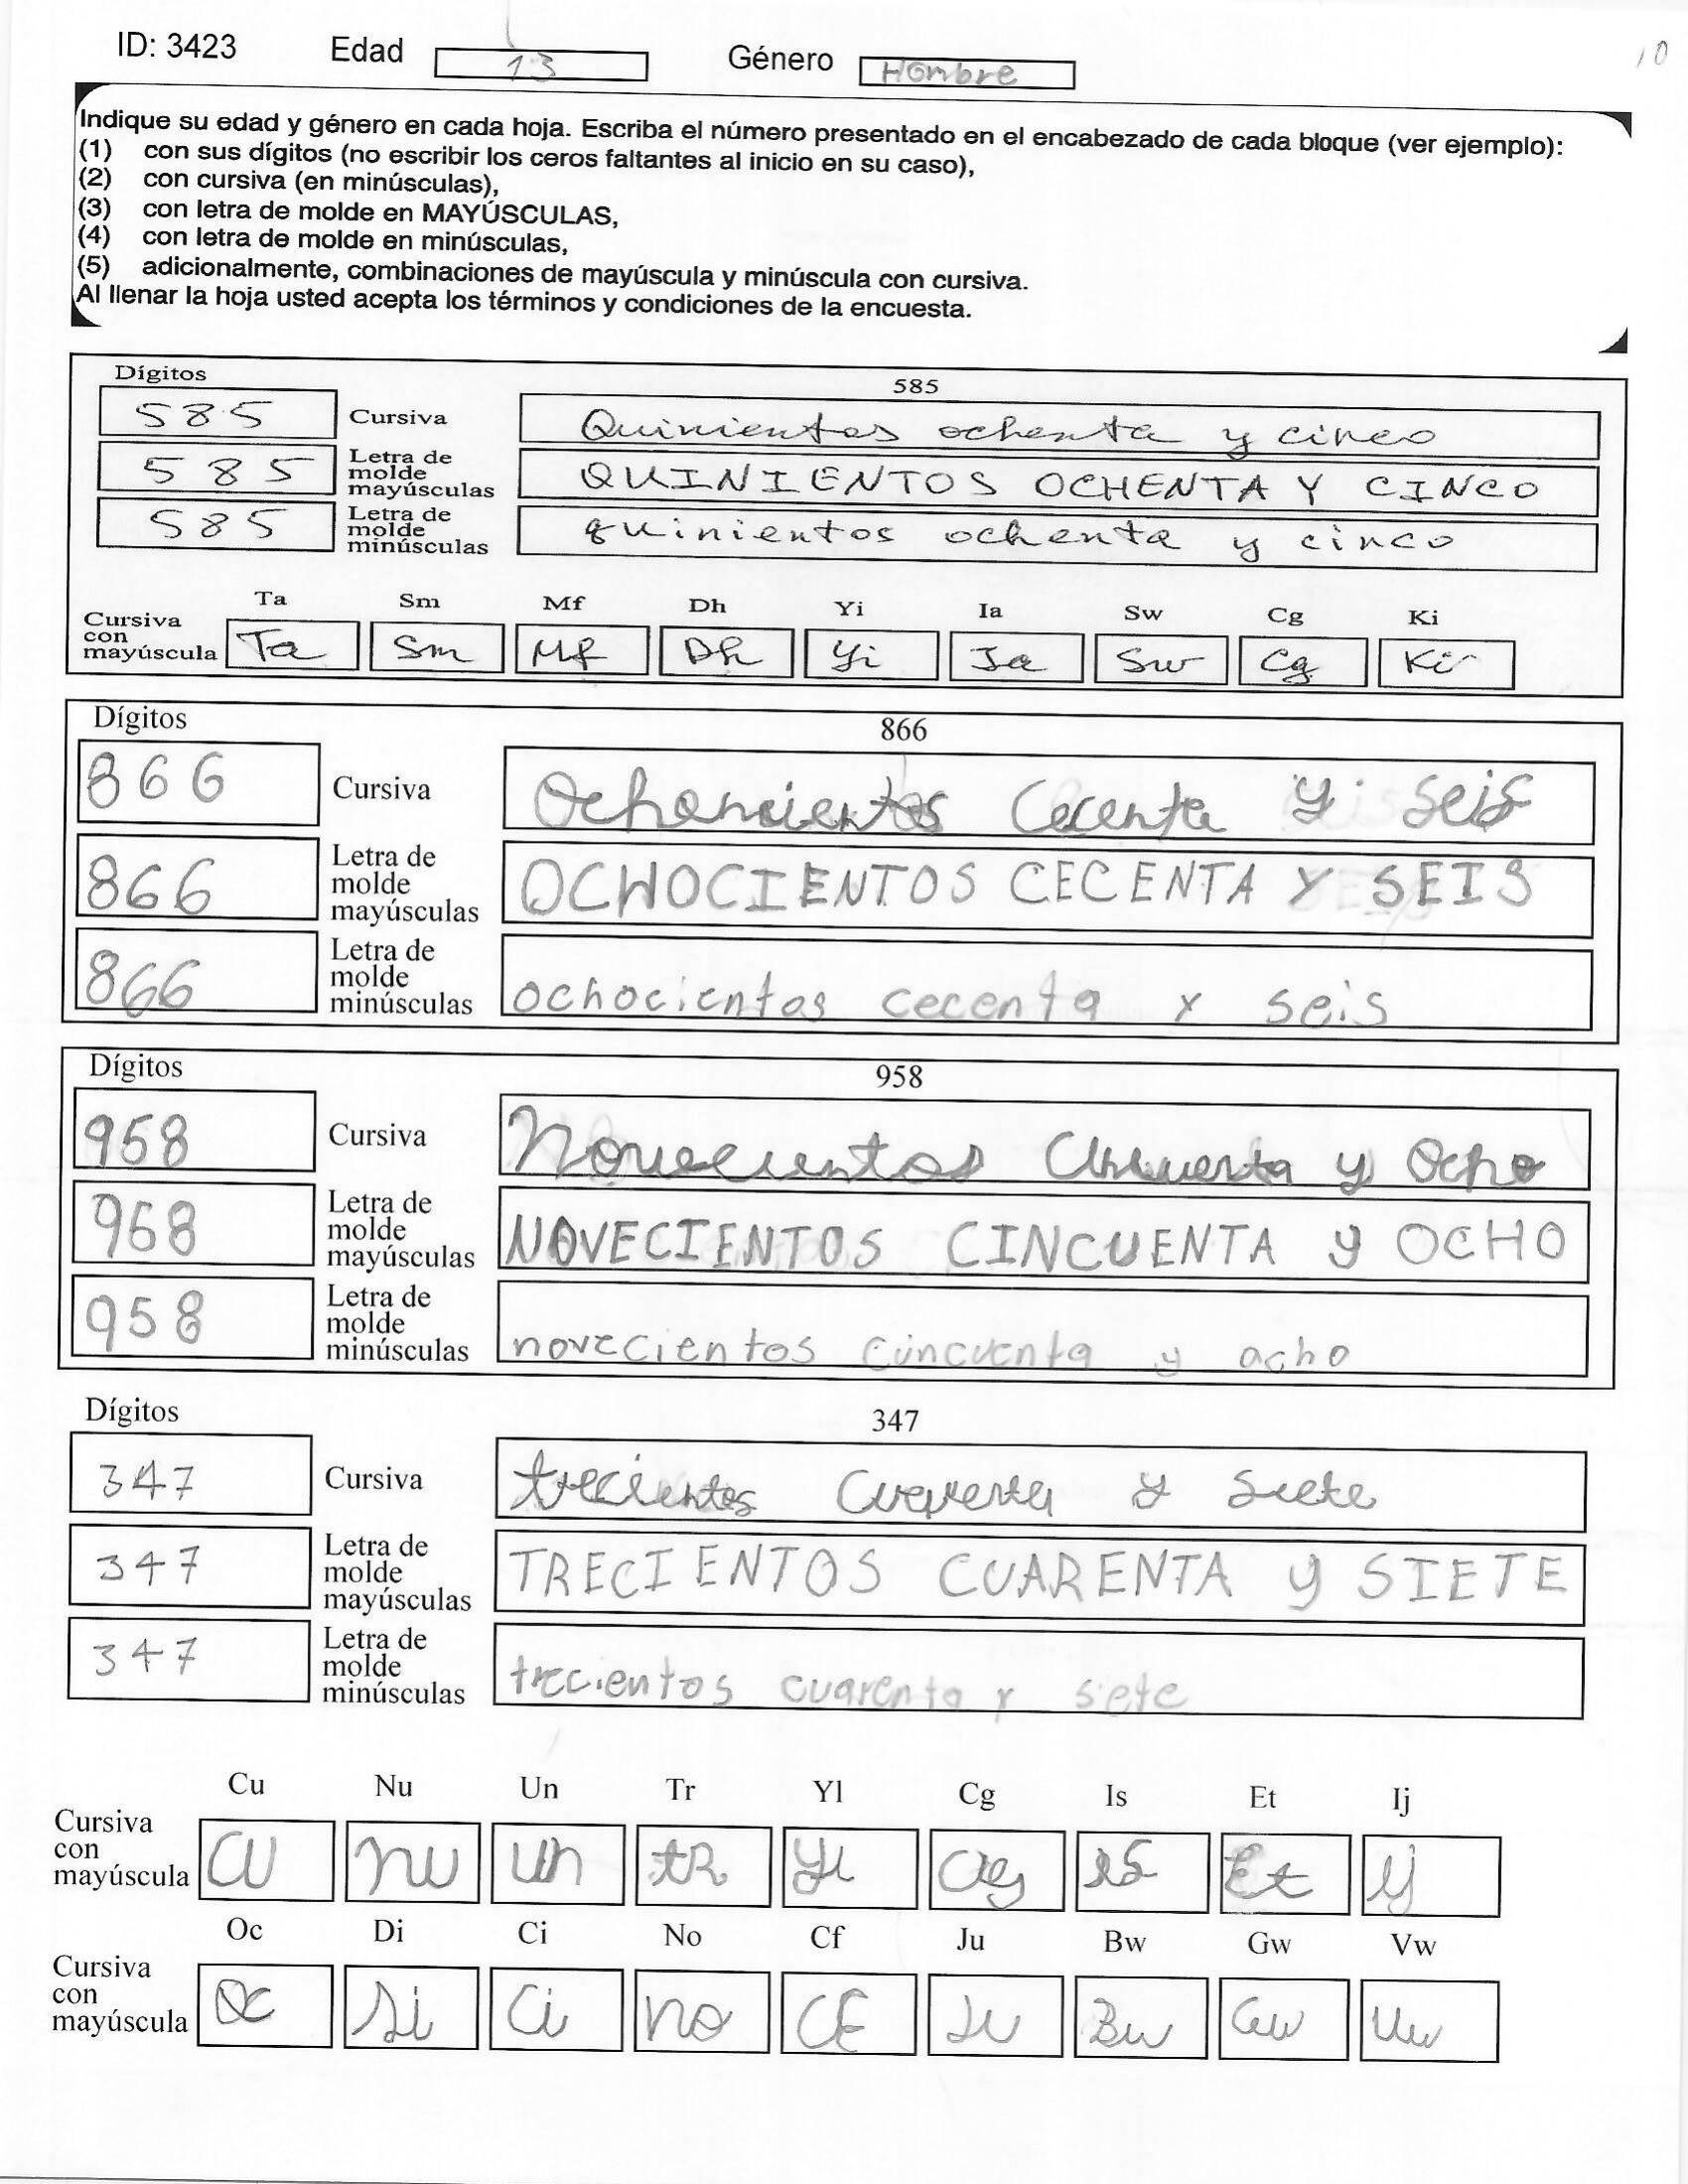 ID: 3423 Edad 13 Género Hombre 10
Indique su edad y género en cada hoja. Escriba el número presentado en el encabezado de cada bloque (ver ejemplo):
(1) con sus dígitos (no escribir los ceros faltantes al inicio en su caso),
(2) con cursiva (en minúsculas),
(3) con letra de molde en MAYÚSCULAS,
(4) con letra de molde en minúsculas,
(5) adicionalmente, combinaciones de mayúscula y minúscula con cursiva.
Al llenar la hoja usted acepta los términos y condiciones de la encuesta.
Dígitos 585
585 Cursiva Quinientos ochenta y cinco
585 Letra de molde mayúsculas QUINIENTOS OCHENTA Y CINCO
585 Letra de molde minúsculas quinientos ochenta y cinco
Ta Sm Mf Dh Yi Ia Sw Cg Ki
Cursiva con mayúscula Ta Sm Mf Dh Yi Ia Sw Cg Ki
Dígitos 866
866 Cursiva Cecenta y seis
866 Letra de molde mayúsculas OCHOCIENTOS CECENTA Y SEIS
866 Letra de molde minúsculas ochocientos cecenta y seis
Dígitos 958
958 Cursiva Novecientos y Ocho
958 Letra de molde mayúsculas NOVECIENTOS CINCUENTA y OCHO
958 Letra de molde minúsculas novecientos cincuenta y ocho
Dígitos 347
347 Cursiva trecientos y siete
347 Letra de molde mayúsculas TRECIENTOS CUARENTA y SIETE
347 Letra de molde minúsculas trecientos cuarenta y siete
Cu Nu Un Tr Yl Cg Is Et Ij
Cursiva con mayúscula Cu nu Un tR Yl Cg is Et ij
Oc Di Ci No Cf Ju Bw Gw Vw
Cursiva con mayúscula Oc Di Ci no CF Ju Bw Gw Vw